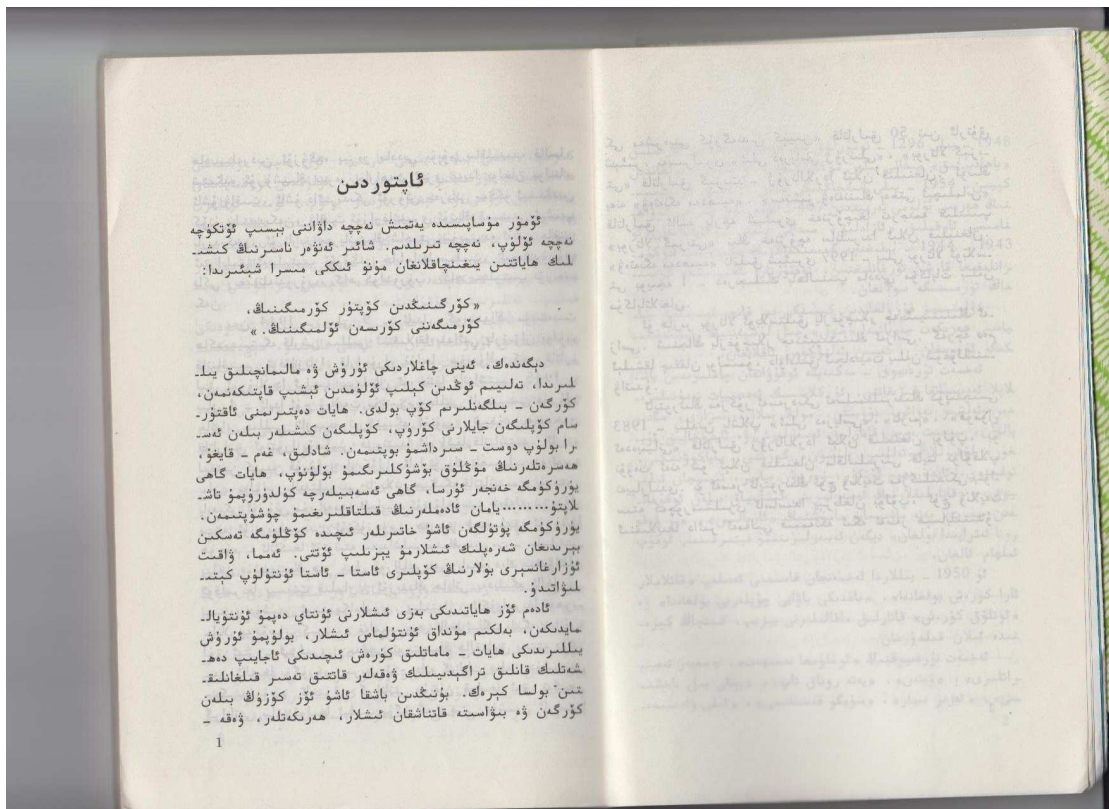 ئاپتوردىن
ئۆمۈر مۇساپىسىدە يەتمىش نەچچە داۋاننى بېسىپ ئۆتكۈچە
نەچچە ئۆلۈپ، نەچچە تىرىلدىم. شائىر ئەنۋەر ناسىرنىڭ كىشى‍ـ
لىك ھاياتتىن يىغىنچاقلانغان مۇنۇ ئىككى مىسرا شېئىرىدا:
«كۆرگىنىڭدىن كۆپتۇر كۆرمىگىنىڭ،
كۆرمىگەننى كۆرسەن ئۆلمىگىنىڭ.»
دېگەندەك، ئەينى چاغلاردىكى ئۇرۇش ۋە مالىمانچىلىق يىل‍ـ
لىرىدا، تەلىيىم ئوڭدىن كېلىپ ئۆلۈمدىن ئېشىپ قاپتىكەنمەن،
كۆرگەن – بىلگەنلىرىم كۆپ بولدى. ھايات دەپتىرىمنى ئاقتۇر‍ـ
سام كۆپلىگەن جايلارنى كۆرۈپ، كۆپلىگەن كىشىلەر بىلەن ئەس‍ـ
را بولۇپ دوست – سىرداشمۇ بوپتىمەن. شادلىق، غەم – قايغۇ،
ھەسرەتلەرنىڭ مۇڭلۇق بۆشۈكلىرىگىمۇ بۆلۈنۈپ، ھايات گاھى
يۈرۈكۈمگە خەنجەر ئۇرسا، گاھى ئەسەبىيلەرچە كۈلدۈرۈپمۇ تاش‍ـ
لاپتۇ.........يامان ئادەملەرنىڭ قىلتاقلىرىغىمۇ چۈشۈپتىمەن.
يۈرۈكۈمگە پۈتۈلگەن ئاشۇ خاتىرىلەر ئىچىدە كۆڭلۈمگە تەسكىن
بېرىدىغان شەرەپلىك ئىشلارمۇ يېزىلىپ ئۆتتى. ئەمما، ۋاقىت
ئۇزارغانسېرى بۇلارنىڭ كۆپلىرى ئاستا – ئاستا ئۇنتۇلۇپ كېتى‍ـ
لىۋاتىدۇ.
ئادەم ئۆز ھاياتىدىكى بەزى ئىشلارنى ئۇنتاي دەپمۇ ئۇنتۇيال‍ـ
مايدىكەن، بەلكىم مۇنداق ئۇنتۇلماس ئىشلار، بولۇپمۇ ئۇرۇش
يىللىرىدىكى ھايات – ماماتلىق كۈرەش ئىچىدىكى ئاجايىپ دەھ‍ـ
شەتلىك قانلىق تراگېدىيىلىك ۋەقەلەر قاتتىق تەسىر قىلغانلىق‍ـ
تىن بولسا كېرەك. بۇنىڭدىن باشقا ئاشۇ ئۆز كۆزۈڭ بىلەن
كۆرگەن ۋە بىۋاسىتە قاتناشقان ئىشلار، ھەرىكەتلەر، ۋەقە –
1